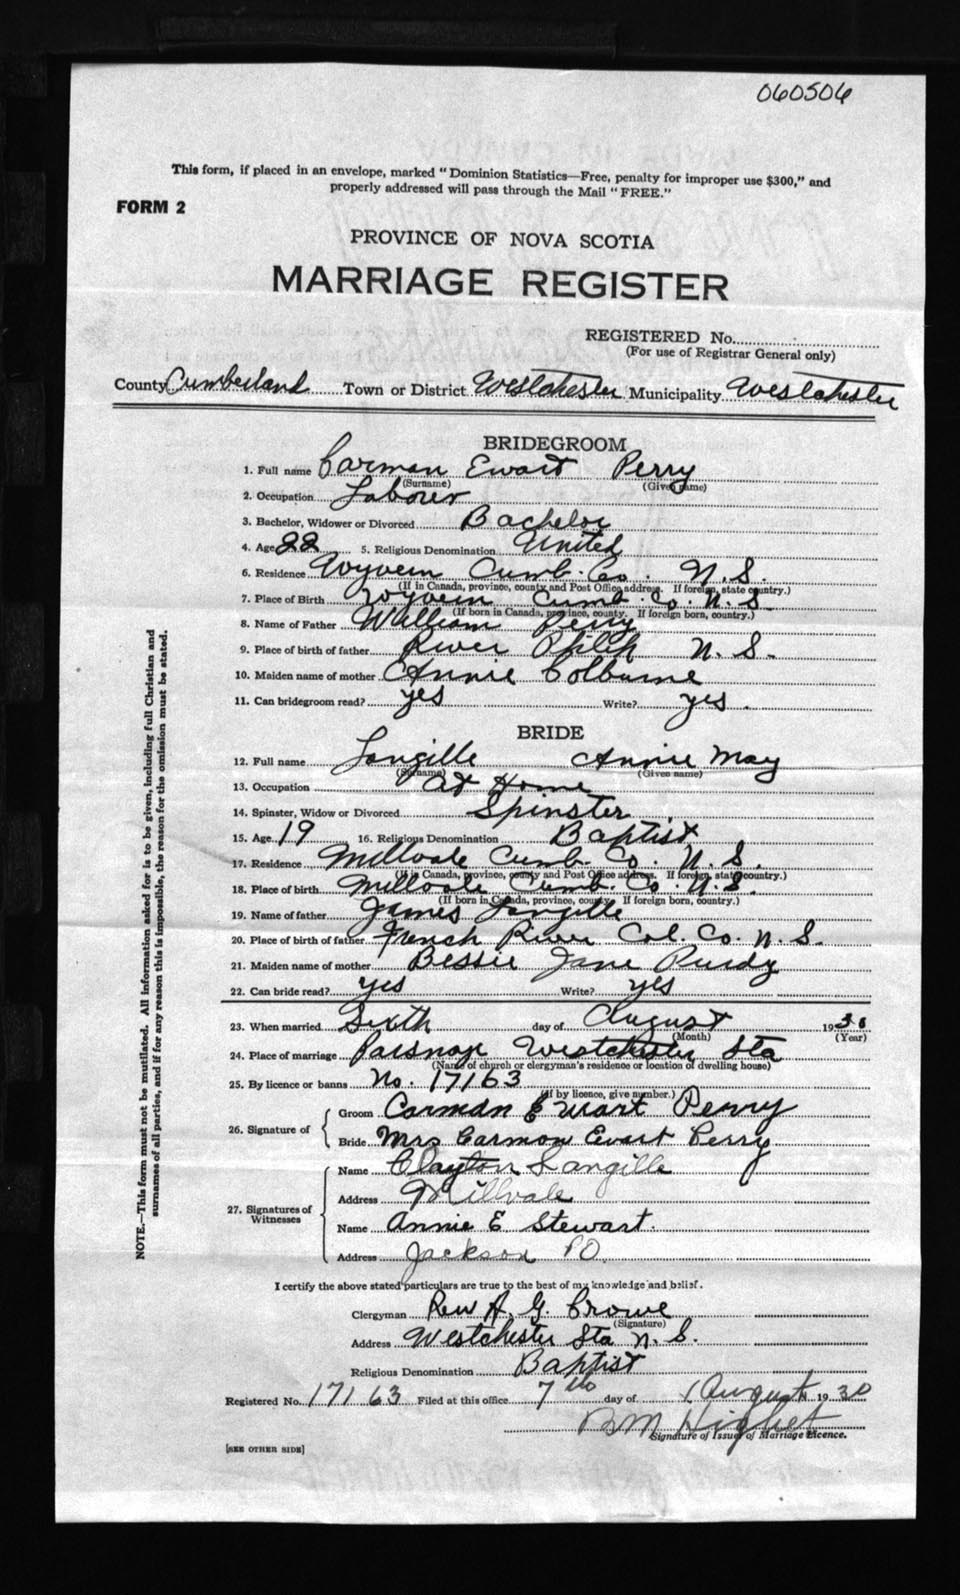 060506
This form, if placed in an envelope, marked "Dominion Statistics—Free, penalty for improper use $300," and
properly addressed will pass through the Mail "FREE."
FORM 2
PROVINCE OF NOVA SCOTIA
MARRIAGE REGISTER
REGISTERED No.
(For use of Registrar General only)
County Cumberland Town or District Westchester Municipality Westchester
BRIDEGROOM
1. Full name Carman Ewart Perry
(Surname) (Given name)
2. Occupation Laborer
3. Bachelor, Widower or Divorced Bachelor
4. Age 22 5. Religious Denomination United
6. Residence Wyvern Cumb. Co. N. S.
(If in Canada, province, county and Post Office address. If foreign, state country.)
7. Place of Birth Wyvern Cumb. Co. N. S.
(If born in Canada, province, county. If foreign born, country.)
8. Name of Father William Perry
9. Place of birth of father River Philip N. S.
10. Maiden name of mother Annie Colburne
11. Can bridegroom read? yes Write? yes.
BRIDE
12. Full name Langille Annie May
(Surname) (Given name)
13. Occupation At Home
14. Spinster, Widow or Divorced Spinster
15. Age 19 16. Religious Denomination Baptist
17. Residence Millvale Cumb. Co. N. S.
(If in Canada, province, county and Post Office address. If foreign, state country.)
18. Place of birth Millvale Cumb. Co. N. S.
(If born in Canada, province, county. If foreign born, country.)
19. Name of father James Langille
20. Place of birth of father French River Col. Co. N. S.
21. Maiden name of mother Bessie Jane Purdy
22. Can bride read? yes Write? yes
23. When married Sixth day of August 1930
(Month) (Year)
24. Place of marriage Parsnage Westchester Sta
(Name of church or clergyman's residence or location of dwelling house)
25. By licence or banns No. 17163
(If by licence, give number.)
26. Signature of Groom Carman Ewart Perry
Bride Mrs Carmon Ewart Perry
27. Signatures of Witnesses Name Clayton Langille
Address Millvale
Name Annie E Stewart.
Address Jackson PO.
I certify the above stated particulars are true to the best of my knowledge and belief.
Clergyman Rev A. G. Crowe
(Signature)
Address Westchester Sta N. S.
Religious Denomination Baptist
Registered No. 17163 Filed at this office 7th day of August 1930
B M Highet
Signature of Issuer of Marriage Licence.
[SEE OTHER SIDE]
NOTE.—This form must not be mutilated. All information asked for is to be given, including full Christian and
surnames of all parties, and if for any reason this is impossible, the reason for the omission must be stated.